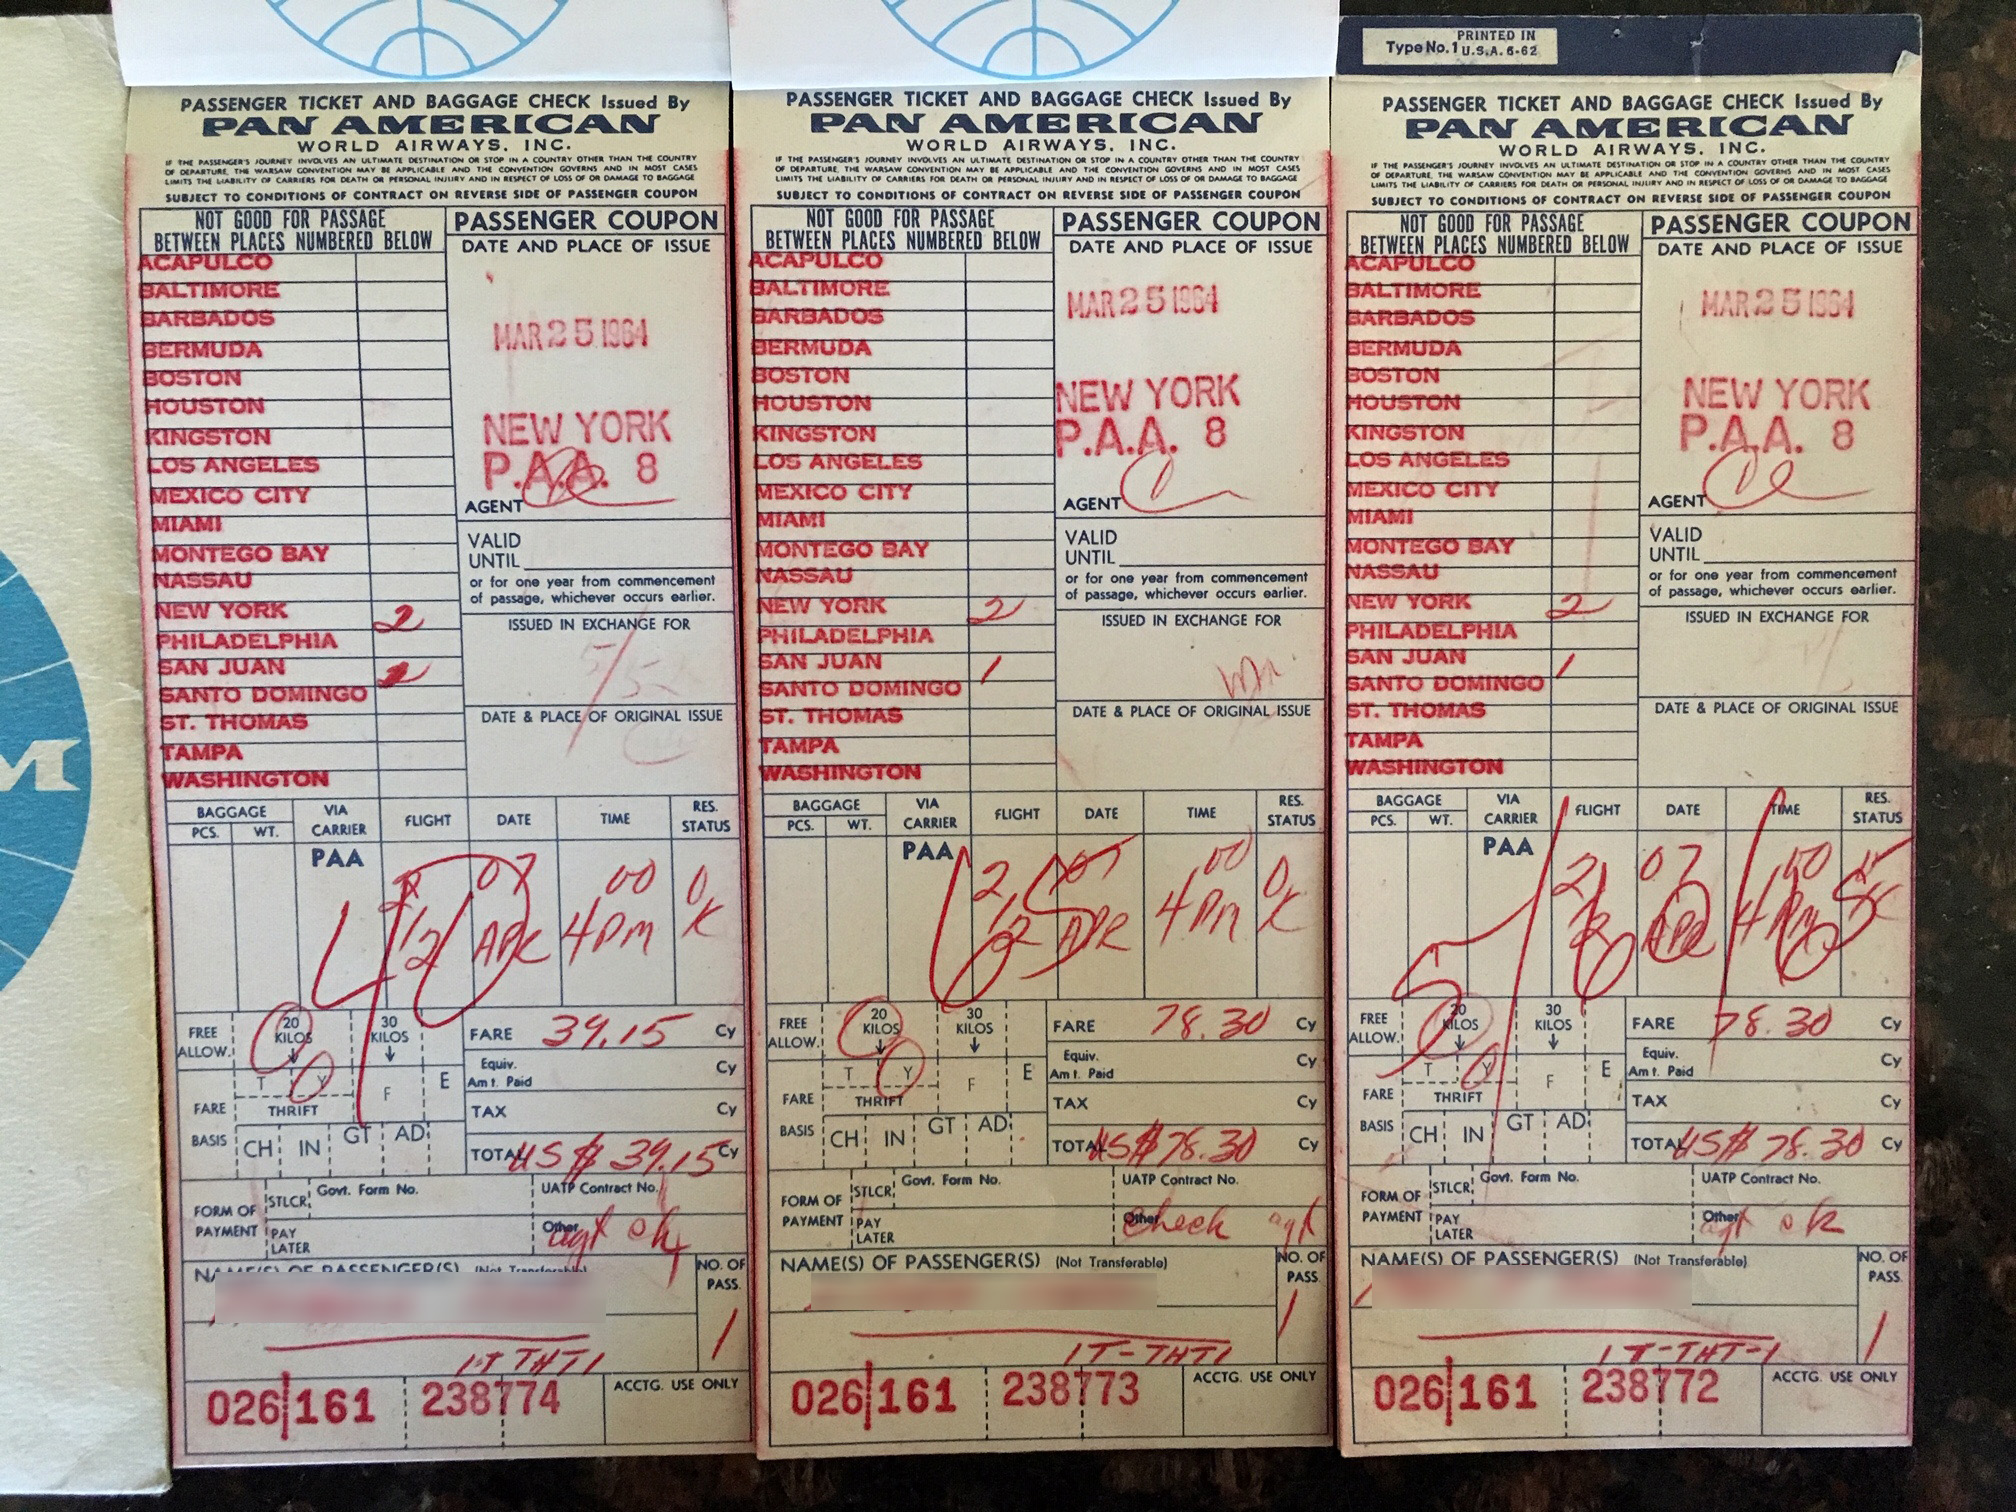 M
PASSENGER TICKET AND BAGGAGE CHECK Issued By
PAN AMERICAN
WORLD AIRWAYS, INC.
IF THE PASSENGER'S JOURNEY INVOLVES AN ULTIMATE DESTINATION OR STOP IN A COUNTRY OTHER THAN THE COUNTRY
OF DEPARTURE, THE WARSAW CONVENTION MAY BE APPLICABLE AND THE CONVENTION GOVERNS AND IN MOST CASES
LIMITS THE LIABILITY OF CARRIERS FOR DEATH OR PERSONAL INJURY AND IN RESPECT OF LOSS OF OR DAMAGE TO BAGGAGE
SUBJECT TO CONDITIONS OF CONTRACT ON REVERSE SIDE OF PASSENGER COUPON
NOT GOOD FOR PASSAGE
BETWEEN PLACES NUMBERED BELOW
ACAPULCO
BALTIMORE
BARBADOS
BERMUDA
BOSTON
HOUSTON
KINGSTON
LOS ANGELES
MEXICO CITY
MIAMI
MONTEGO BAY
NASSAU
NEW YORK 2
PHILADELPHIA
SAN JUAN
SANTO DOMINGO
ST. THOMAS
TAMPA
WASHINGTON
PASSENGER COUPON
DATE AND PLACE OF ISSUE
MAR 25 1964
NEW YORK
P.A.A. 8
AGENT
VALID
UNTIL
or for one year from commencement
of passage, whichever occurs earlier.
ISSUED IN EXCHANGE FOR
DATE & PLACE OF ORIGINAL ISSUE
BAGGAGE VIA CARRIER FLIGHT DATE TIME RES. STATUS
PCS. WT.
PAA 2 07 00 0
12 APR 4 PM K
FREE ALLOW. 20 KILOS 30 KILOS
FARE 39.15 Cy
Equiv. Amt. Paid Cy
T Y F E
THRIFT
TAX Cy
FARE BASIS CH IN GT AD
TOTAL US $ 39.15 Cy
FORM OF PAYMENT STLCR Govt. Form No. UATP Contract No.
PAY LATER Other agt ok
NAME(S) OF PASSENGER(S) (Not Transferable) NO. OF PASS.
1
1T THT1
026 161 238774 ACCTG. USE ONLY
PASSENGER TICKET AND BAGGAGE CHECK Issued By
PAN AMERICAN
WORLD AIRWAYS, INC.
IF THE PASSENGER'S JOURNEY INVOLVES AN ULTIMATE DESTINATION OR STOP IN A COUNTRY OTHER THAN THE COUNTRY
OF DEPARTURE, THE WARSAW CONVENTION MAY BE APPLICABLE AND THE CONVENTION GOVERNS AND IN MOST CASES
LIMITS THE LIABILITY OF CARRIERS FOR DEATH OR PERSONAL INJURY AND IN RESPECT OF LOSS OF OR DAMAGE TO BAGGAGE
SUBJECT TO CONDITIONS OF CONTRACT ON REVERSE SIDE OF PASSENGER COUPON
NOT GOOD FOR PASSAGE
BETWEEN PLACES NUMBERED BELOW
ACAPULCO
BALTIMORE
BARBADOS
BERMUDA
BOSTON
HOUSTON
KINGSTON
LOS ANGELES
MEXICO CITY
MIAMI
MONTEGO BAY
NASSAU
NEW YORK 2
PHILADELPHIA
SAN JUAN 1
SANTO DOMINGO
ST. THOMAS
TAMPA
WASHINGTON
PASSENGER COUPON
DATE AND PLACE OF ISSUE
MAR 25 1964
NEW YORK
P.A.A. 8
AGENT
VALID
UNTIL
or for one year from commencement
of passage, whichever occurs earlier.
ISSUED IN EXCHANGE FOR
DATE & PLACE OF ORIGINAL ISSUE
BAGGAGE VIA CARRIER FLIGHT DATE TIME RES. STATUS
PCS. WT.
PAA 2 07 00 0
12 APR 4 PM K
FREE ALLOW. 20 KILOS 30 KILOS
FARE 78.30 Cy
Equiv. Amt. Paid Cy
T Y F E
THRIFT
TAX Cy
FARE BASIS CH IN GT AD
TOTAL US $ 78.30 Cy
FORM OF PAYMENT STLCR Govt. Form No. UATP Contract No.
PAY LATER Other check agt
NAME(S) OF PASSENGER(S) (Not Transferable) NO. OF PASS.
1
1T-THT1
026 161 238773 ACCTG. USE ONLY
Type No. 1 PRINTED IN U.S.A. 6-62
PASSENGER TICKET AND BAGGAGE CHECK Issued By
PAN AMERICAN
WORLD AIRWAYS, INC.
IF THE PASSENGER'S JOURNEY INVOLVES AN ULTIMATE DESTINATION OR STOP IN A COUNTRY OTHER THAN THE COUNTRY
OF DEPARTURE, THE WARSAW CONVENTION MAY BE APPLICABLE AND THE CONVENTION GOVERNS AND IN MOST CASES
LIMITS THE LIABILITY OF CARRIERS FOR DEATH OR PERSONAL INJURY AND IN RESPECT OF LOSS OF OR DAMAGE TO BAGGAGE
SUBJECT TO CONDITIONS OF CONTRACT ON REVERSE SIDE OF PASSENGER COUPON
NOT GOOD FOR PASSAGE
BETWEEN PLACES NUMBERED BELOW
ACAPULCO
BALTIMORE
BARBADOS
BERMUDA
BOSTON
HOUSTON
KINGSTON
LOS ANGELES
MEXICO CITY
MIAMI
MONTEGO BAY
NASSAU
NEW YORK 2
PHILADELPHIA
SAN JUAN 1
SANTO DOMINGO
ST. THOMAS
TAMPA
WASHINGTON
PASSENGER COUPON
DATE AND PLACE OF ISSUE
MAR 25 1964
NEW YORK
P.A.A. 8
AGENT
VALID
UNTIL
or for one year from commencement
of passage, whichever occurs earlier.
ISSUED IN EXCHANGE FOR
DATE & PLACE OF ORIGINAL ISSUE
BAGGAGE VIA CARRIER FLIGHT DATE TIME RES. STATUS
PCS. WT.
PAA 2 07 00
APR 4 PM
FREE ALLOW. 20 KILOS 30 KILOS
FARE 78.30 Cy
Equiv. Amt. Paid Cy
T Y F E
THRIFT
TAX Cy
FARE BASIS CH IN GT AD
TOTAL US $ 78.30 Cy
FORM OF PAYMENT STLCR Govt. Form No. UATP Contract No.
PAY LATER Other agt ok
NAME(S) OF PASSENGER(S) (Not Transferable) NO. OF PASS.
1
1T-THT-1
026 161 238772 ACCTG. USE ONLY